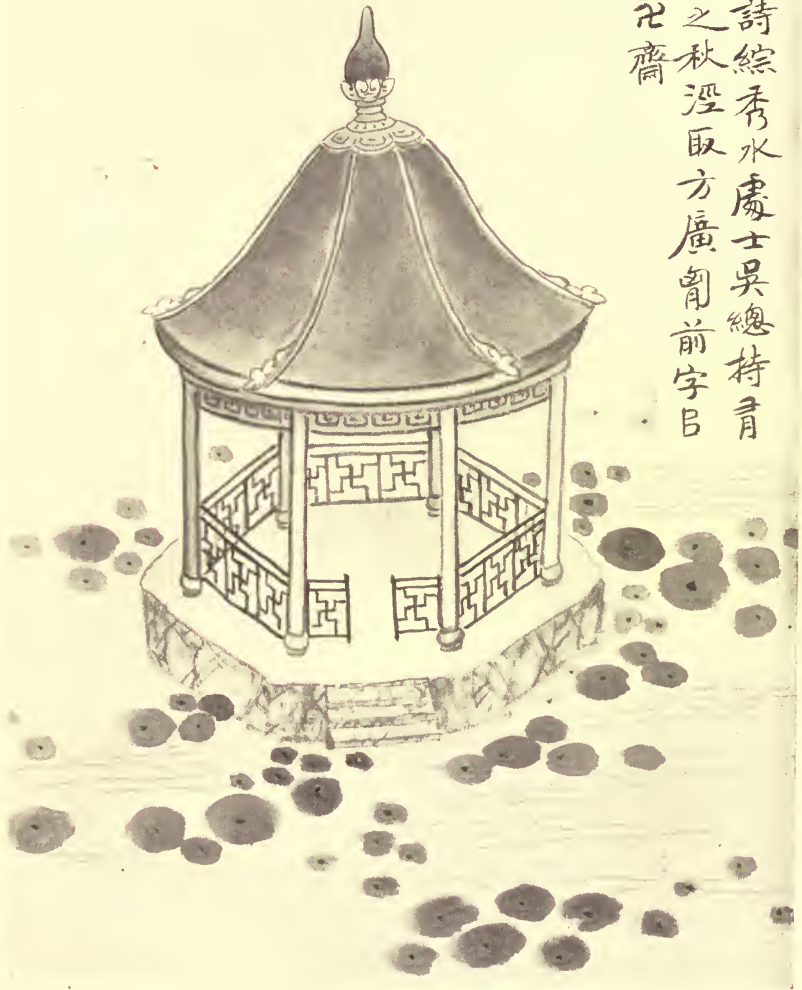 詩綜秀水處士吳總持有
之秋涇取方廣胷前字㠯
卍齋